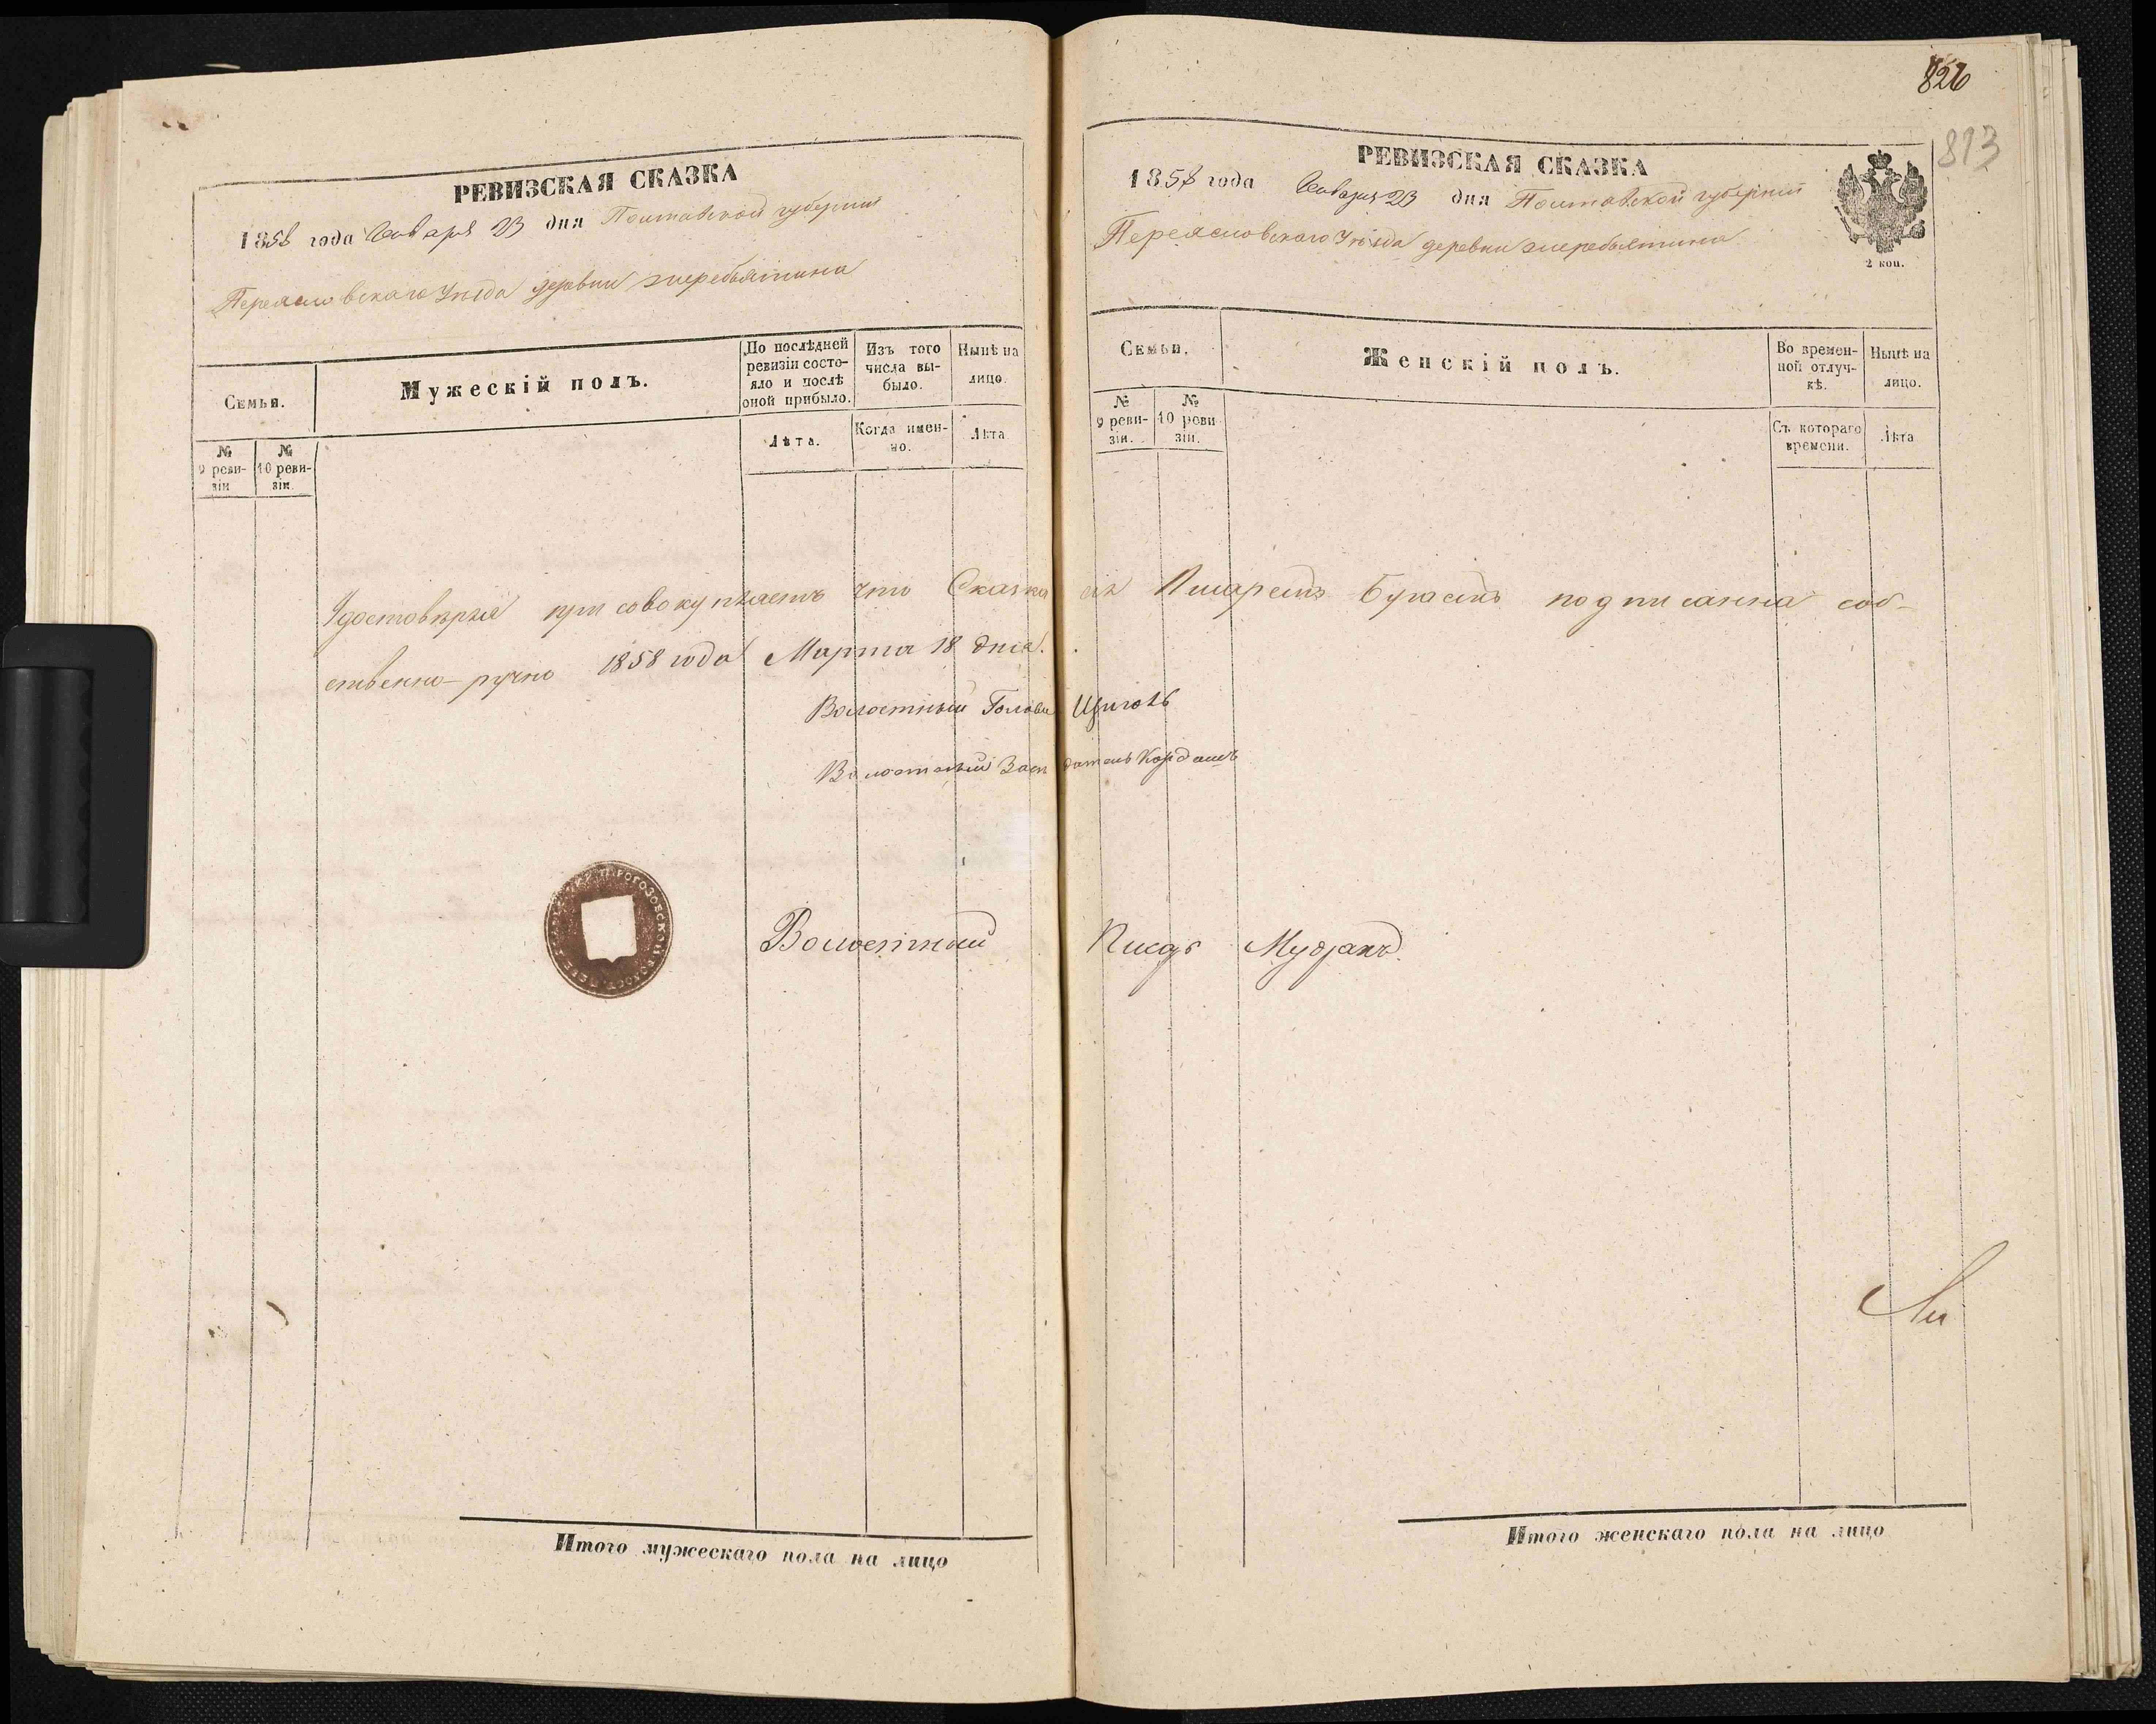 РЕВИЗСКАЯ СКАЗКА
1858 года Генваря 23 дня Полтавской губернии
Переясловскаго Уѣзда деревни жеребятина
Семьи.
Мужескій полъ.
По послѣдней ревизіи состояло и послѣ оной прибыло.
Изъ того числа выбыло.
Нынѣ на лицо.
№ 9 ревизіи
№ 10 ревизіи.
Лѣта.
Когда именно.
Лѣта
826
813
РЕВИЗСКАЯ СКАЗКА
1858 года Генваря 23 дня Полтавской губерніи
Переясловскаго Уѣзда деревни жеребятина
2 коп.
Семьи.
Женскій полъ.
Во временной отлучкѣ.
Нынѣ на лицо.
№ 9 ревизіи.
№ 10 ревизіи.
Съ котораго времени.
Лѣта
Удостовѣряя присовокупляетъ что Сказка сія Писаремъ подписанна соб-
ственно-ручно 1858 года Марта 18 дня.
Волостный Голова
Волостный Засѣдатель Кордашъ
РОГОЗОВСКОЙ ВОЛОСТ
Волостный Писарь
Итого мужескаго пола на лицо
Итого женскаго пола на лицо